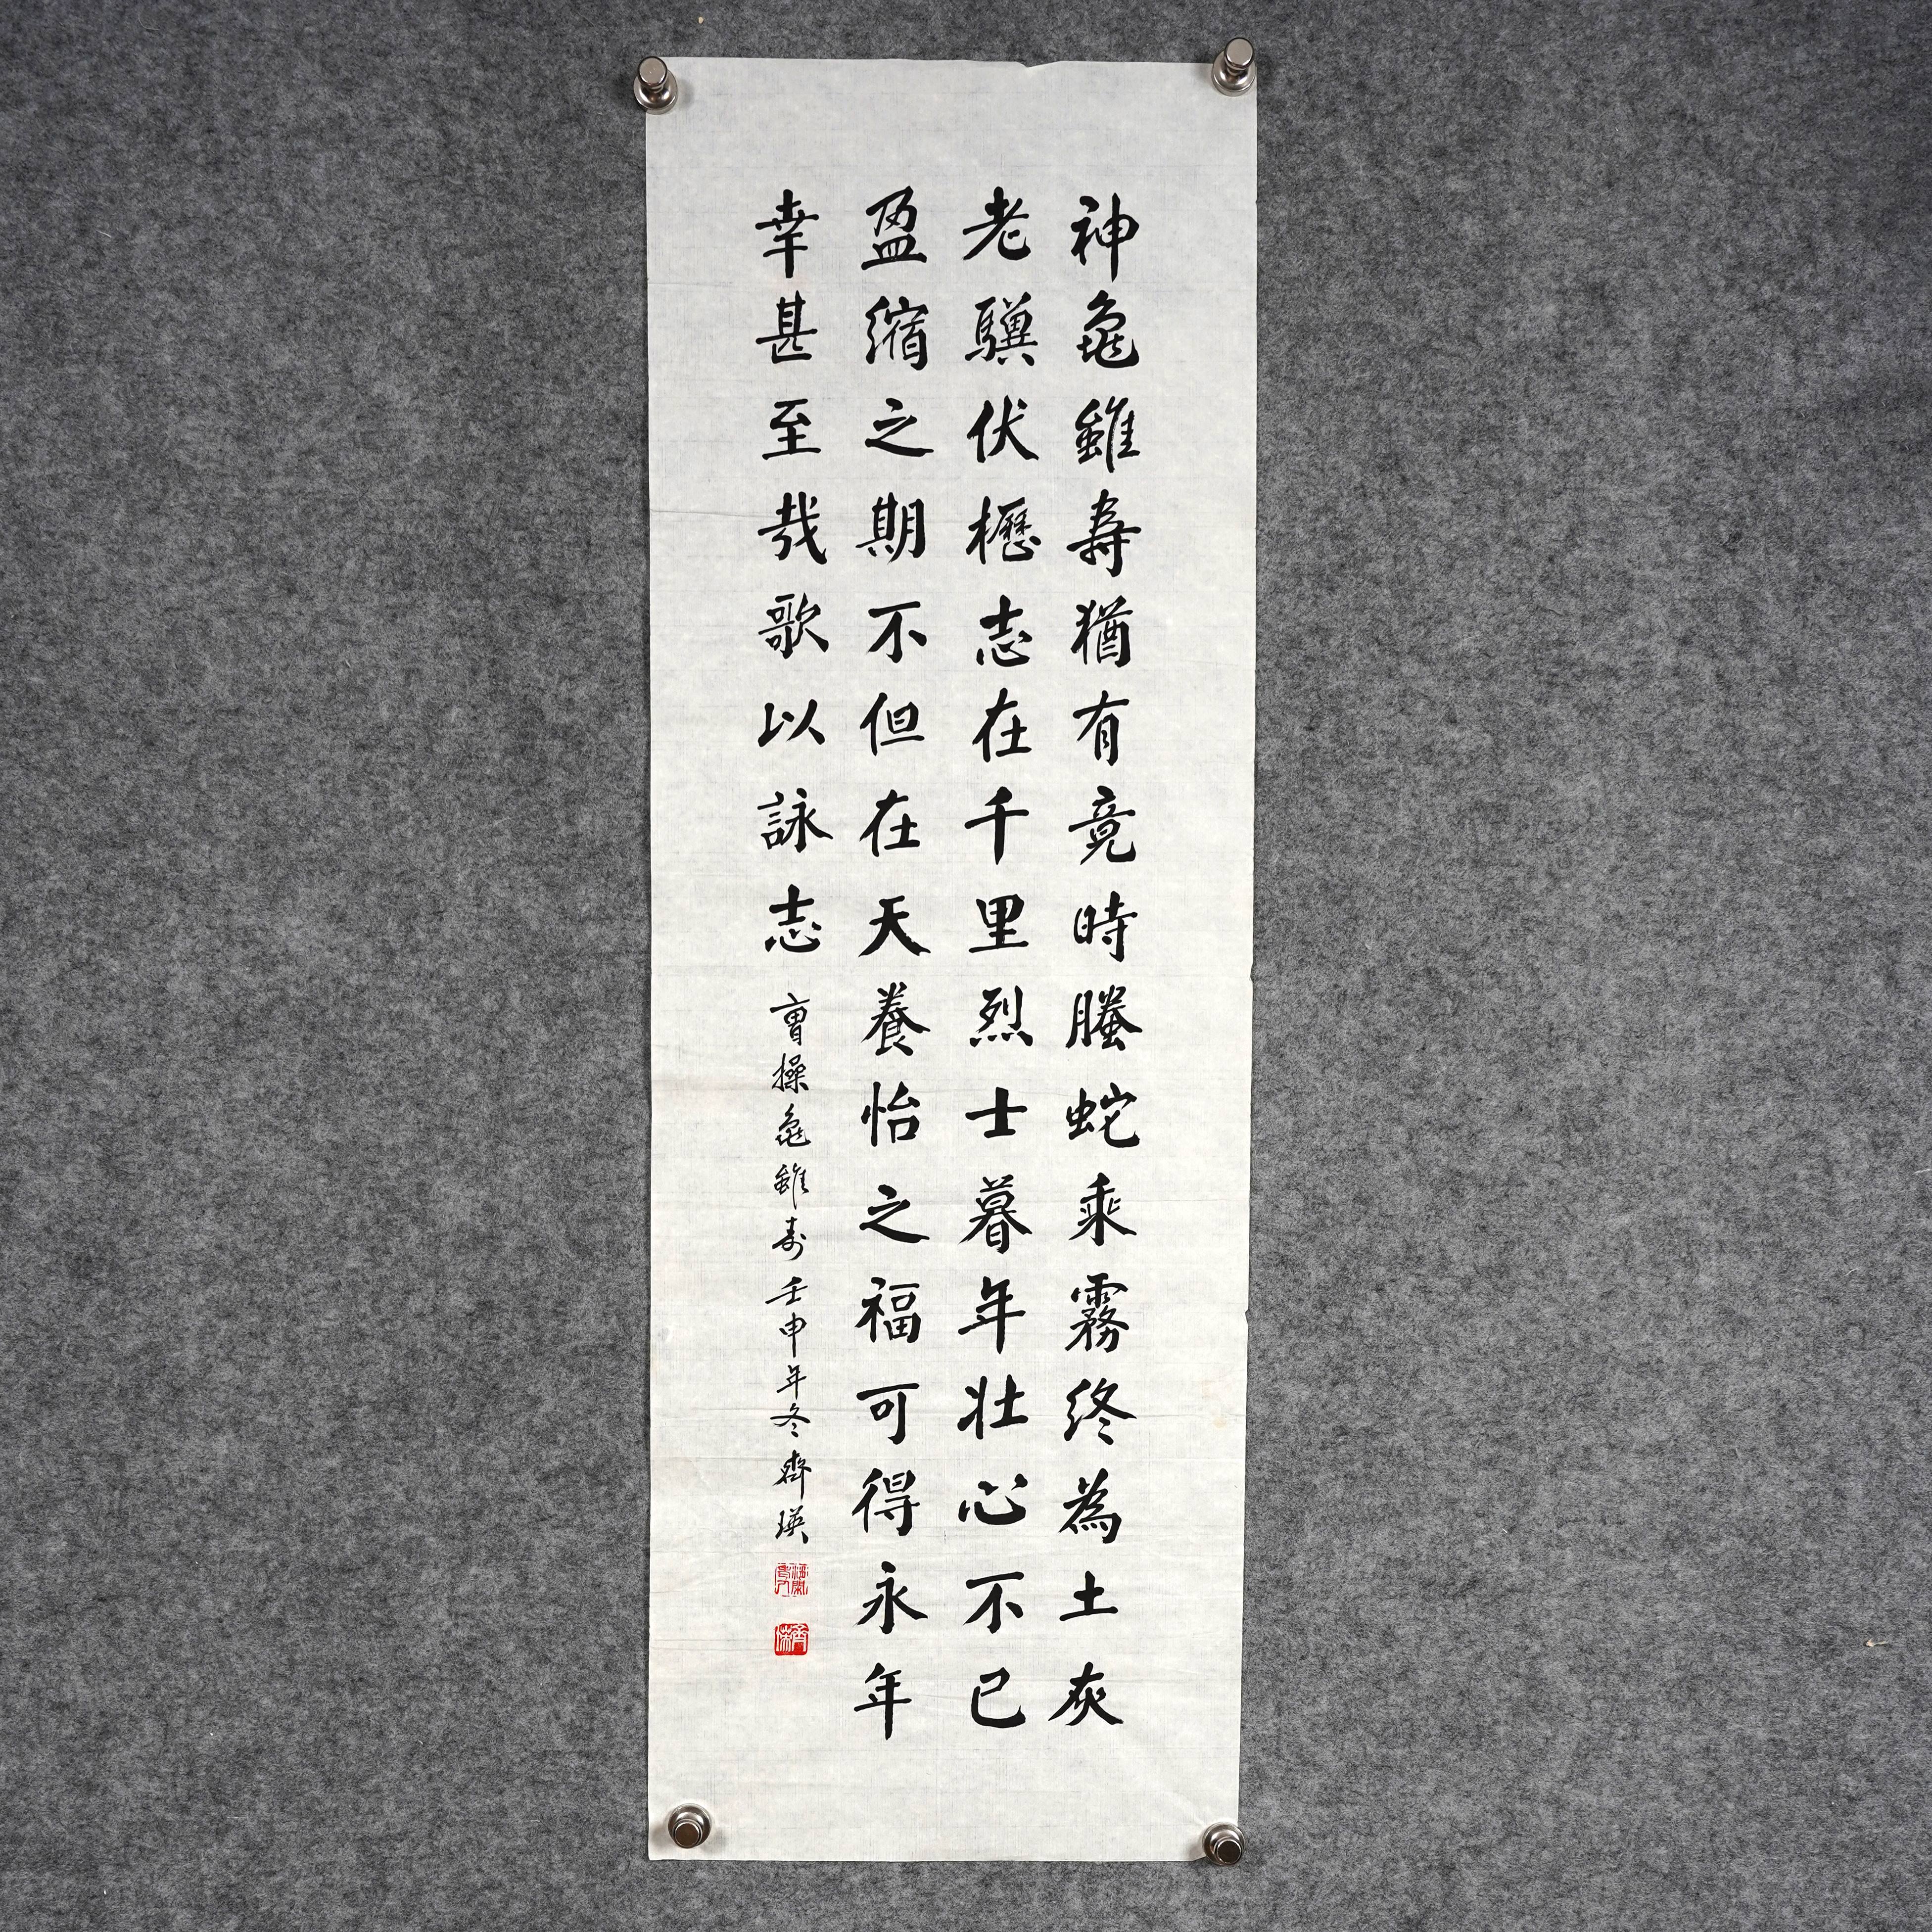 神龜雖壽猶有竟時騰蛇乘霧終為土灰
老驥伏櫪志在千里烈士暮年壯心不已
盈縮之期不但在天養怡之福可得永年
幸甚至哉歌以詠志 曹操龜雖寿 壬申年冬齊瑛